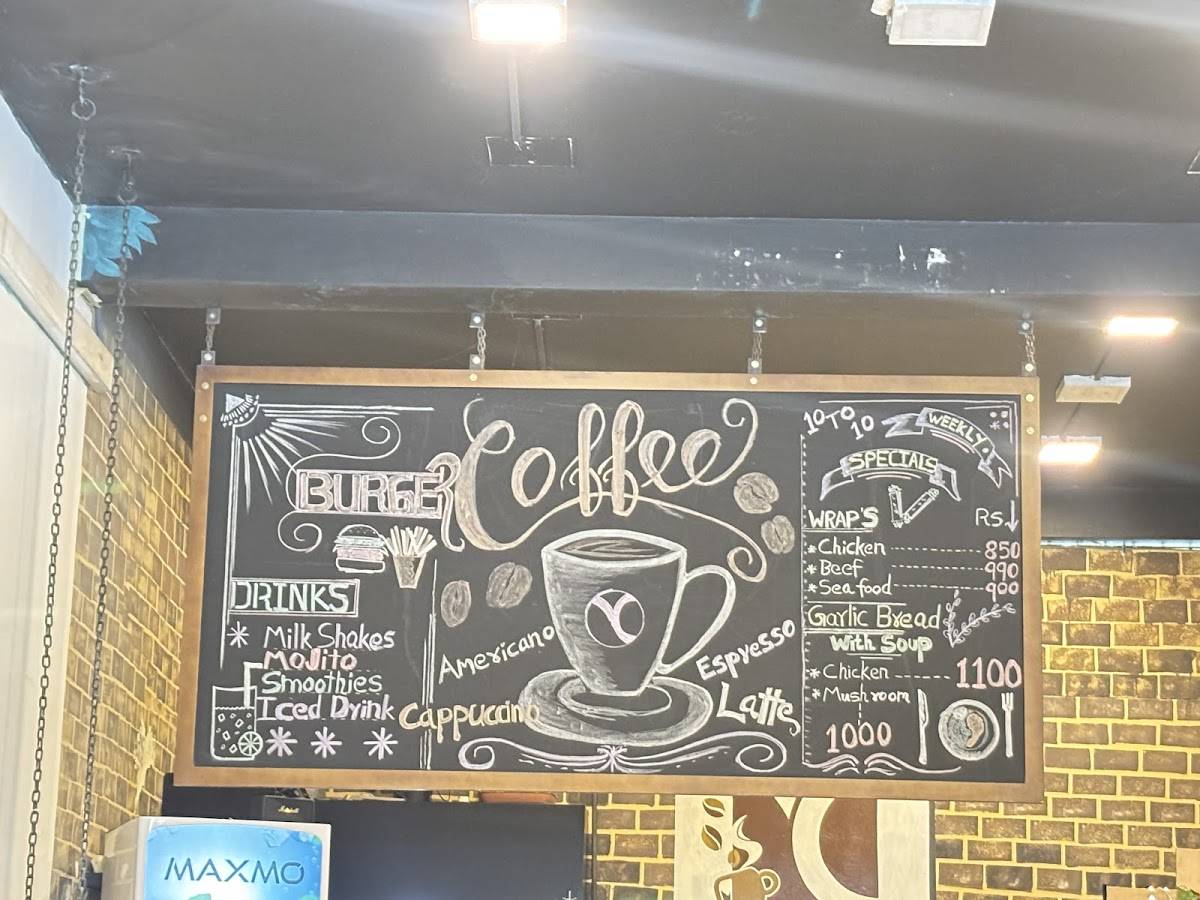 Coffee
BURGER
DRINKS
Milk Shakes
Mojito
Smoothies
Iced Drink
Americano
Cappuccino
Espresso
Latte
10 TO 10
WEEKLY
SPECIALS
WRAP'S RS.
* Chicken 850
* Beef 990
* Sea food 900
Garlic Bread
With Soup
* Chicken 1100
* Mushroom
1000
MAXMO